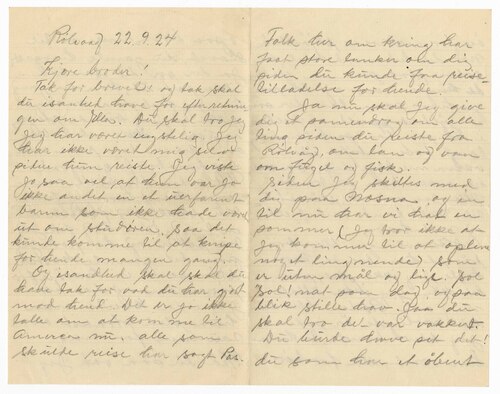 Rölvaag 22.9.24
Kjære broder!
Tak for brevet og tak skal
du isandhed have for efterretnin
gen om Jdas. Du skal tro jeg
jeg har vöret ængstelig. Jeg
har ikke vöret mig selv
siden hun reiste. Jeg viste
jo saa vel at hun var jo
ikke andet en et uerfarent
barn som ikke hade vöret
ut om studören, saa det
kunde komme til at knipe
for hende mangen gang.
Og isandhed skal skal du
have tak for vad du har gjort
mod hend. Det er jo ikke
tale om at komme til
America nu, alle som
skulde reise har sagt Pas.
Folk her om kring har
fåat store tanker om dig
siden du kunde faa reise-
tilladelse for hende.
Ja nu skal jeg give
dig et sammendrag om alle
ting siden du reiste fra
Rölvåg, om lan og van
om fugel og fisk.
Siden jeg skiltes med
dig paa Nosna og en
til nu har vi hav en
sommer (Jeg tror ikke at
jeg kommer til at opleve
noget lingnende) som
er uten mål og lige. Sol
Sol! nat som dag, og paa
blik stille hav. Jaa du
skal tro det var vakkert.
Du burde have set det!
du som har et åbent